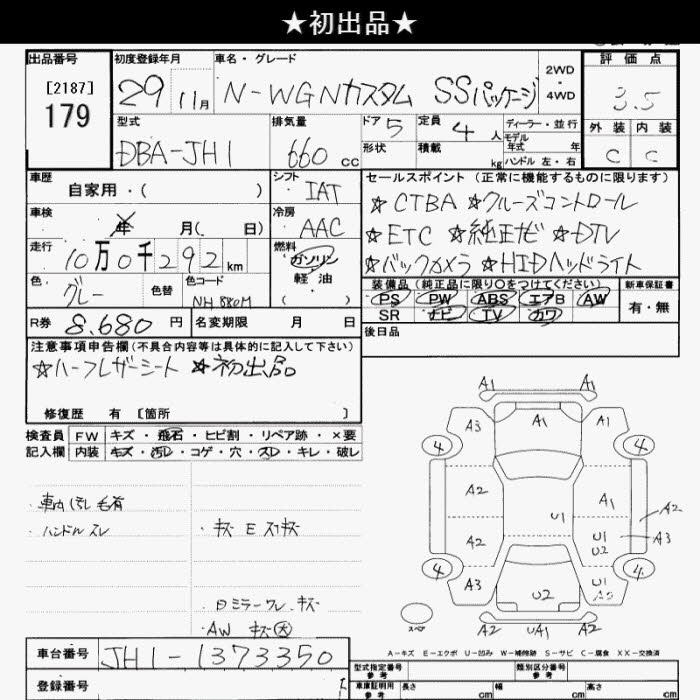 ★初出品★
出品番号 初度登録年月 車名・グレード 2WD・4WD 評価点
[2187]
179
29 11月 N-WGNカスタム SSパッケージ 3.5
型式 排気量 ドア 5 定員 4人 ディーラー・並行 外装 内装
モデル年式 年
DBA-JH1 660cc 形状 積載 kg ハンドル 左・右 C C
車歴 シフト セールスポイント (正常に機能するものに限ります)
自家用・( ) IAT ☆CTBA ☆クルーズコントロール
車検 年 月( 日) 冷房 AAC ☆ETC ☆純正ナビ ☆DTV
走行 10万0千292km 燃料 ガソリン ☆バックカメラ ☆HIDヘッドライト
軽油
( )
色 グレー 色替 色コード NH880M 装備品 (純正品に限り○をつけてください) 新車保証書
PS PW ABS エアB AW 有・無
SR ナビ TV カワ
R券 8.680円 名変期限 月 日 後日品
注意事項申告欄(不具合内容等は具体的に記入して下さい)
☆ハーフレザーシート ☆初出品
修復歴 有 [箇所 ]
検査員 FW キズ・飛石・ヒビ割・リペア跡・×要
記入欄 内装 キズ・汚レ・コゲ・穴・スレ・キレ・破レ
・車内汚レ毛有
・ハンドルスレ ・キズ E スリキズ
・ミラーワレ・キズ
・AW キズ大
A1 A1
A3 A1 A1
4 4
A2 A1 A2
U1
A2 U1 U2 A3
4 4
A3 U2 U1
スペア A2 UA1 A2
A-キズ E-エクボ U-凹み W-補修跡 S-サビ C-腐食 XX-交換済
車台番号 JH1-1373350
型式指定番号 参考 類別区分番号 参考
登録番号 車庫証明用 参考 長さ cm 幅 cm 高さ cm